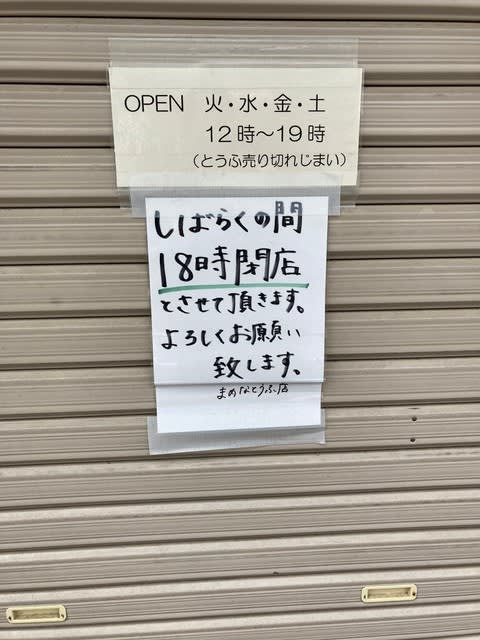 OPEN 火・水・金・土
12時～19時
（とうふ売り切れじまい）
しばらくの間
18時閉店
とさせて頂きます。
よろしくお願い
致します。
まめなとうふ店